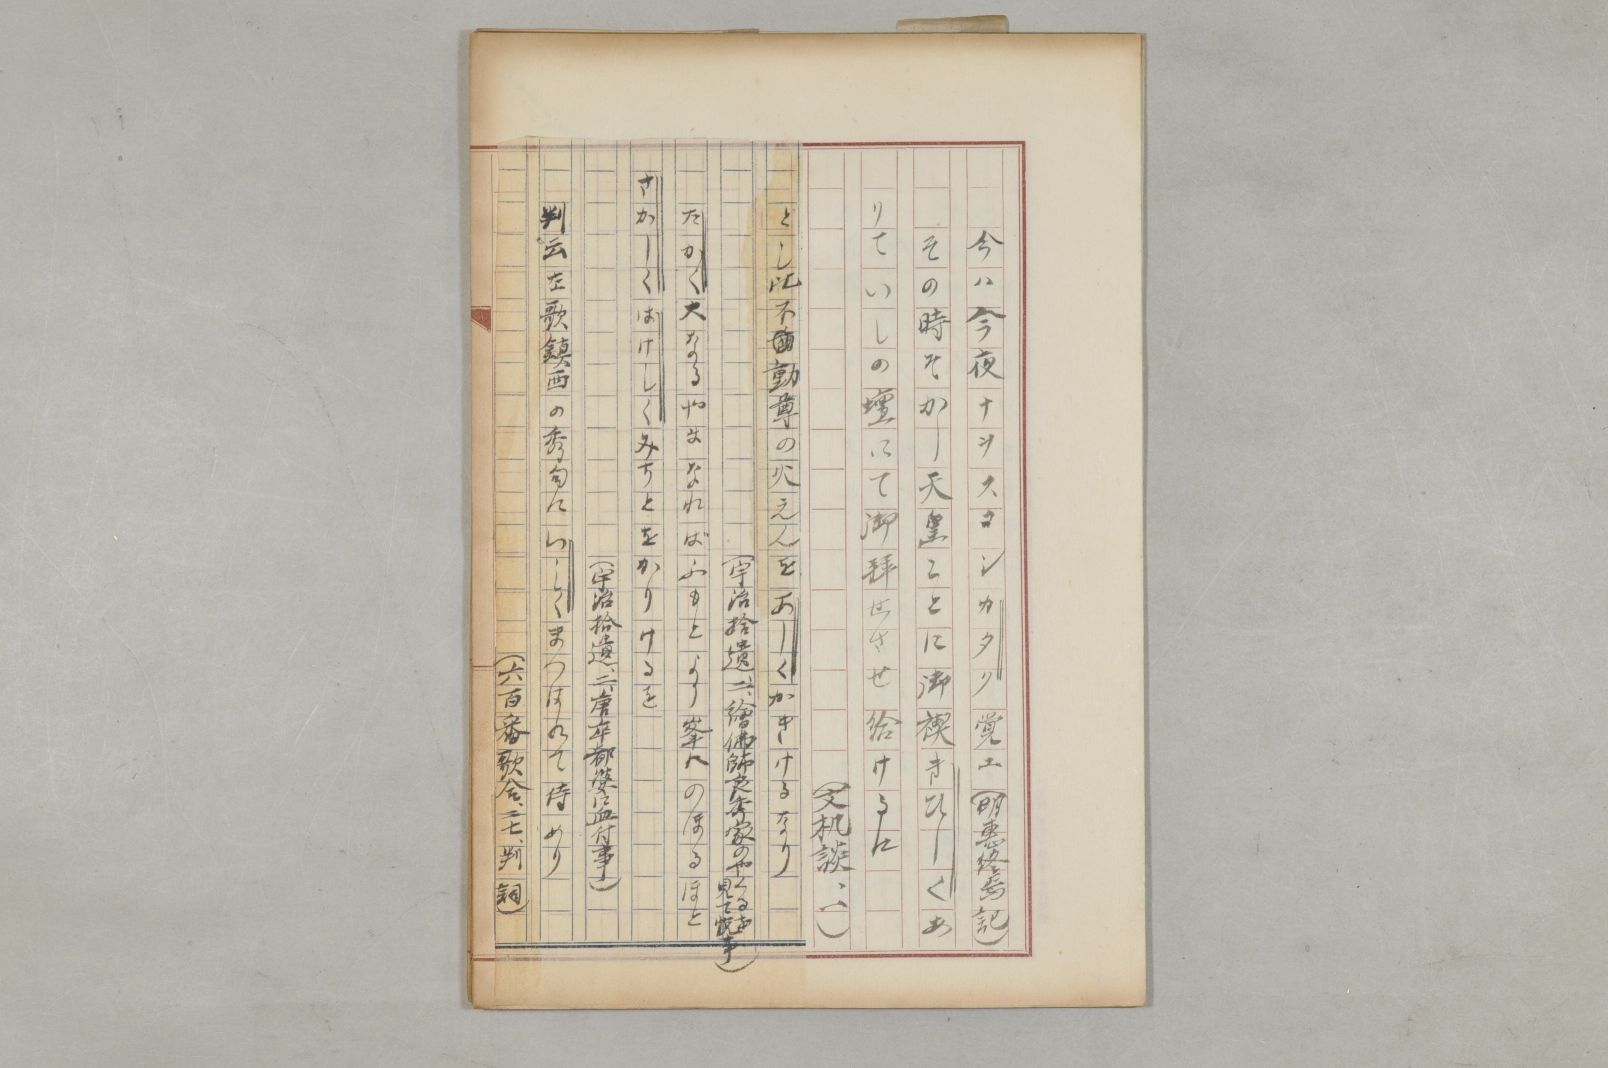 今ハ今夜ナヲスコシカタリ覚エ(明恵終焉記)
その時そかし天皇ことに御禊きひしくあ
りていしの壇にて御拝せさせ給けるに
(文机談、一)
とし比不動尊の火えんをあしくかきけるなり
(宇治拾遺、三、繪佛師良秀家のやくるを見て悦事)
たかく大なるやまなればふもとより峯へのほるほと
さかしくはけしくみちとをかりけるを
(宇治拾遺、二、唐卒都婆に血付事)
判云左歌鎮西の秀句にいしくまつはれて侍めり
(六百番歌合、二七、判詞)